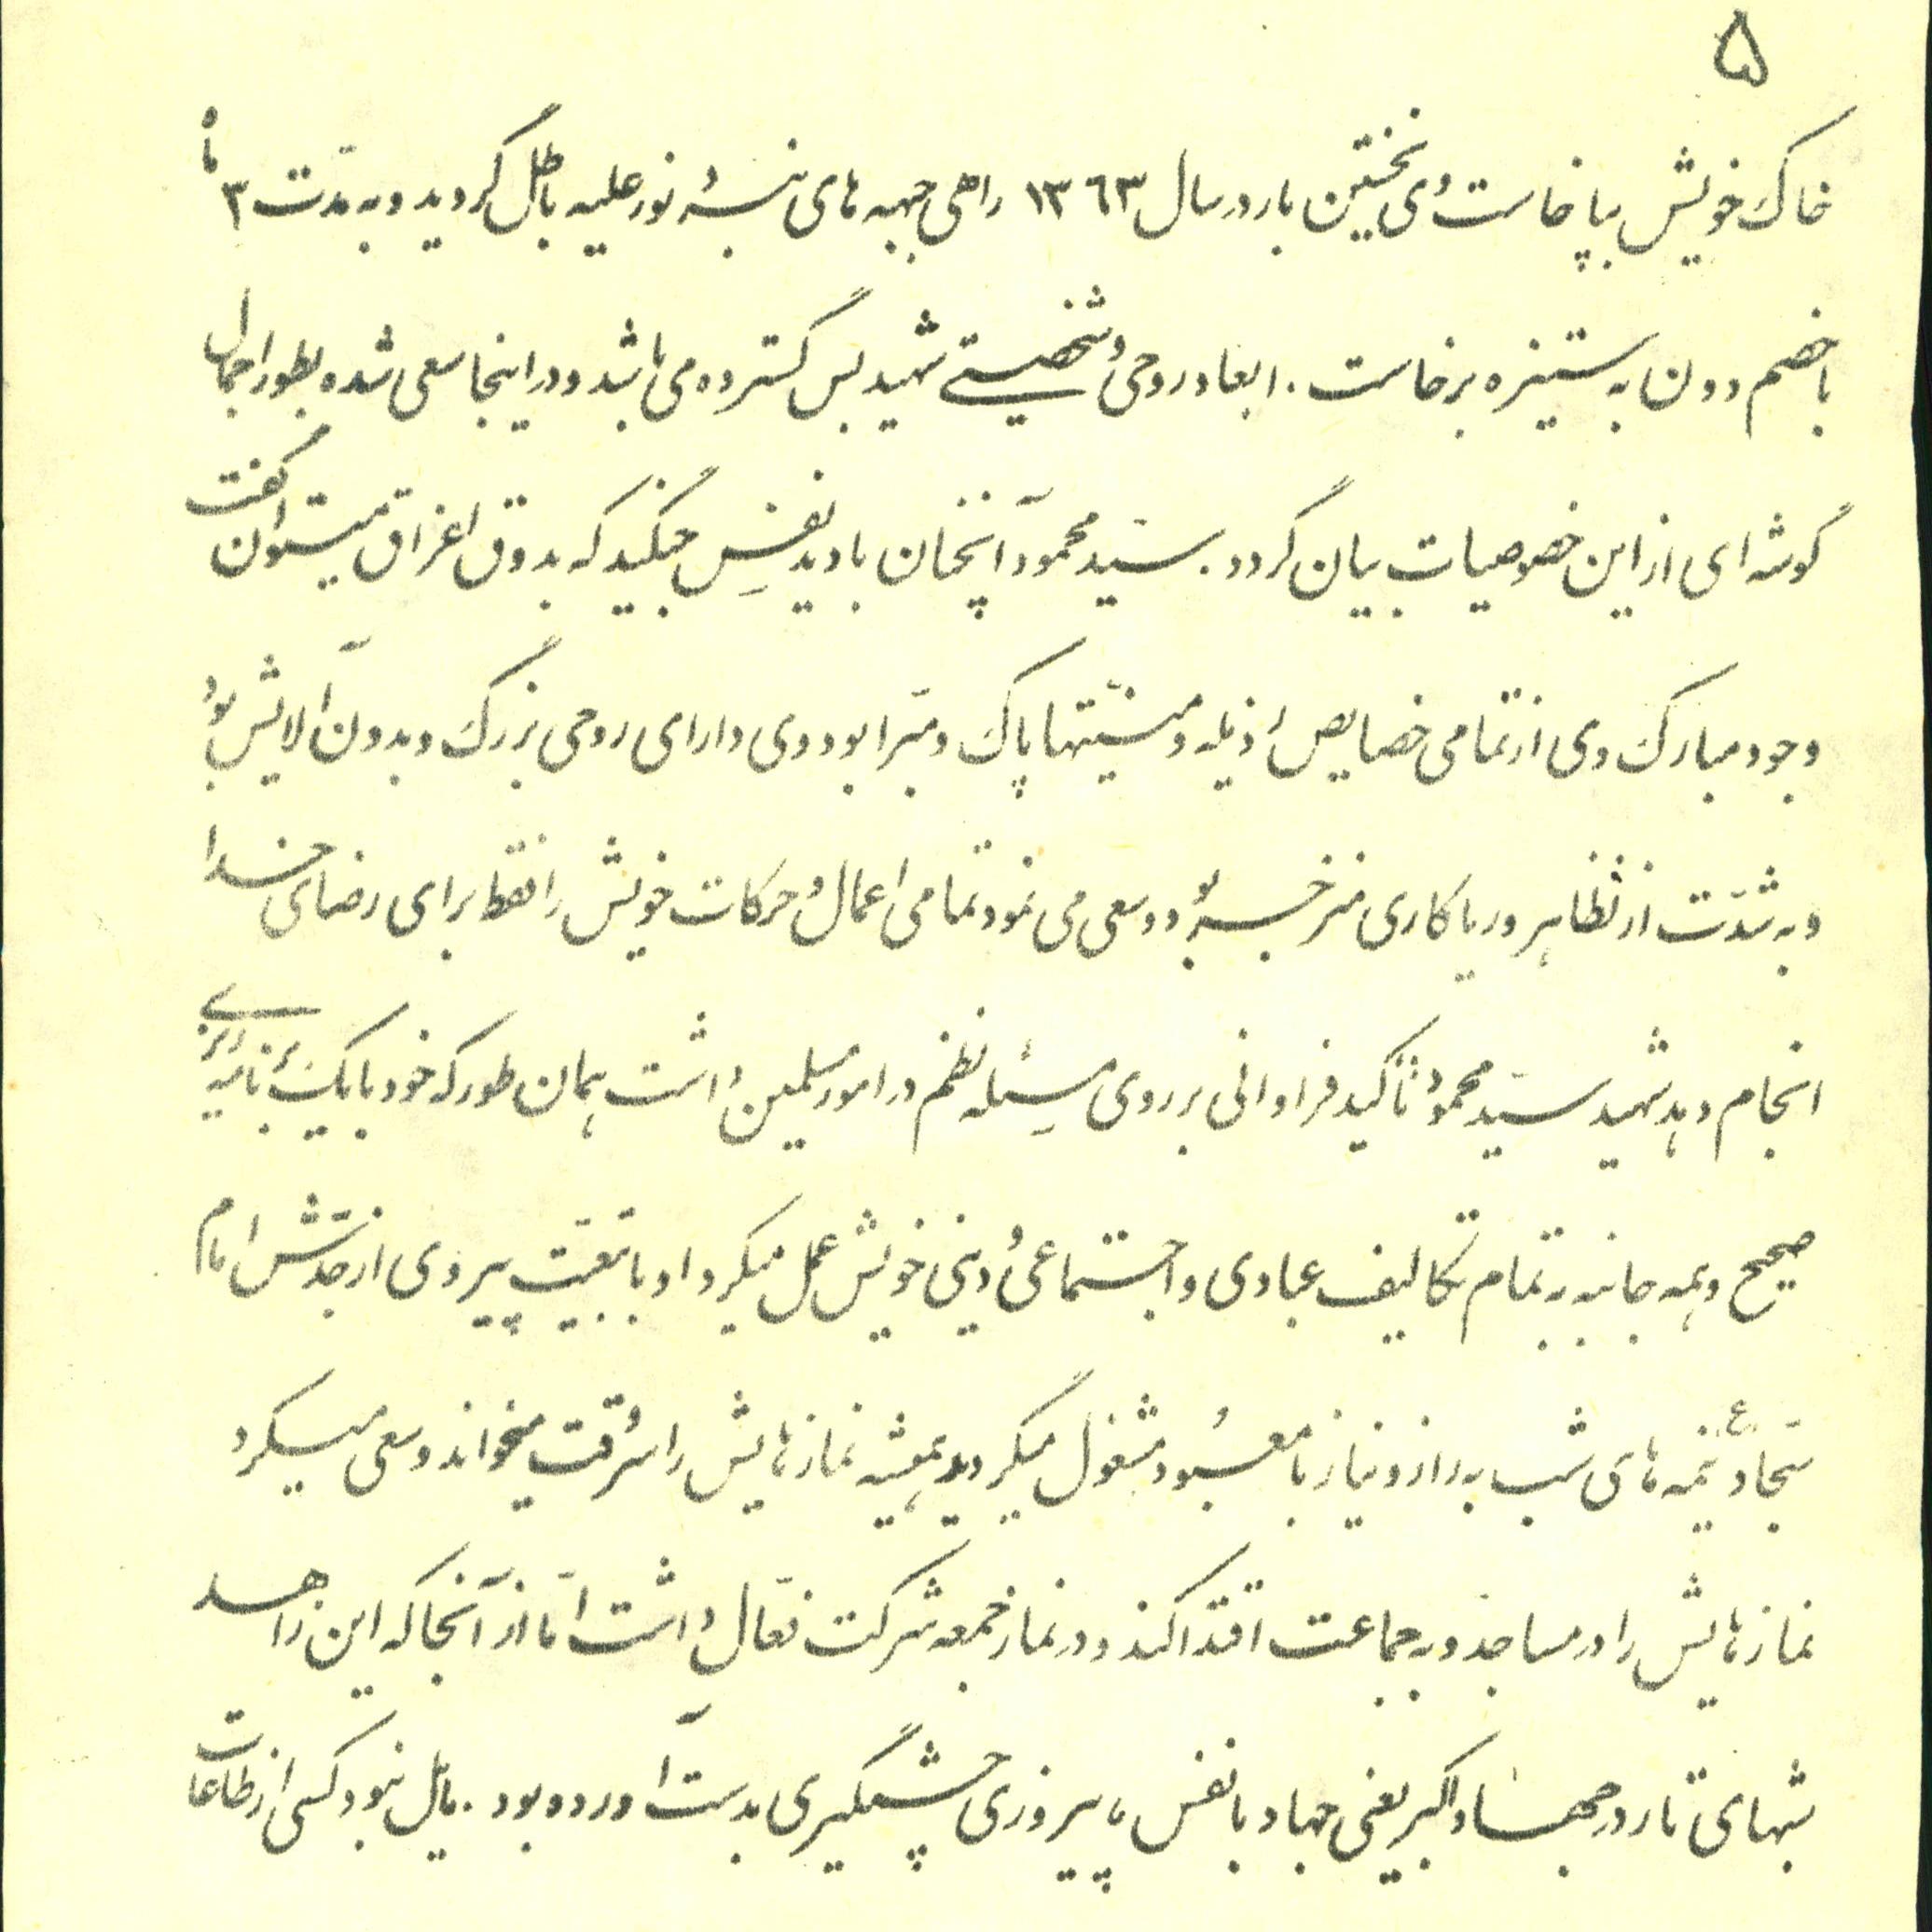 ۵
خاک خویش بپا خاست وی نخستین بار در سال ۱۳۶۳ راهی جبهه های نبرد نور علیه باطل گردید و به مدّت ۳ ماه
با خصم دون به ستیزه برخاست . ابعاد روحی و شخصیتی شهید بس گسترده می باشد و در اینجا سعی شده بطور اجمال
گوشه ای از این خصوصیات بیان گردد . سیّد محمود آنچنان با دیو نفسِ جنگید که بدون اغراق میتوان گفت
وجود مبارک وی از تمامی خصایص رذیله و منیّتها پاک و مبّرا بود وی دارای روحی بزرگ و بدون آلایش بود
و به شدّت از تظاهر و ریا کاری منزجر بود و سعی می نمود تمامی اعمال و حرکات خویش را فقط برای رضای خدا
انجام دهد شهید سیّد محمود تأکید فراوانی بر روی مسئله نظم در امور مسلمین داشت همان طور که خود با یک برنامه ریزی
صحیح و همه جانبه به تمام تکالیف عبادی و اجتماعی و دینی خویش عمل میکرد او با تبعیّت پیروی از جدّش امام
سجّاد ع نیمه های شب به راز و نیاز با معبود مشغول میگردید همیشه نمازهایش را سروقت میخواند و سعی میکرد
نمازهایش را در مساجد و به جماعت اقتدا کند و در نماز جمعه شرکت فعّال داشت امّا از آنجا که این زاهد
شبهای تار در جهاد اکبر یعنی جهاد با نفس ، پیروزی چشمگیری بدست آورده بود . مایل نبود کسی از طاعات